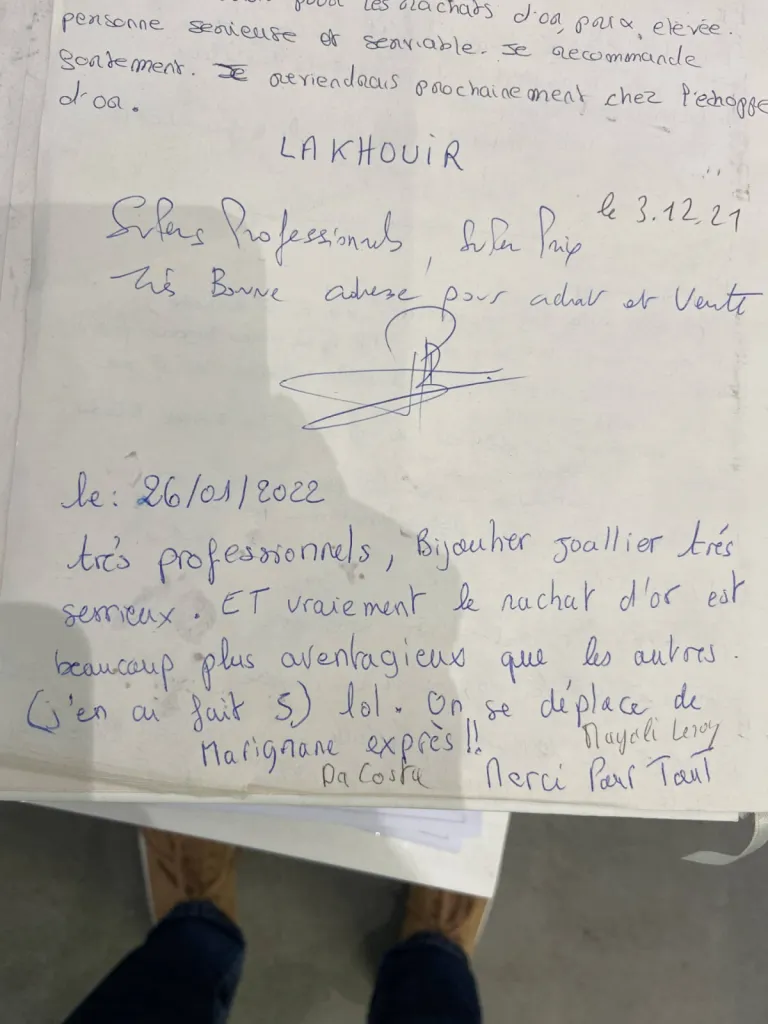 pour les rachats d'or, prix, elevée.
personne serieuse et serviable. Je recommande
fortement. Je reviendrais prochainement chez l'echoppe
d'or.
LAKHOUIR
le 3.12.21
Supers Professionnels, Super Prix
Très Bonne adresse pour achat et Vente
le: 26/01/2022
très professionnels, Bijoutier Joallier trés
serrieux. ET vraiement le rachat d'or est
beaucoup plus aventagieux que les autres.
(j'en ai fait 5) lol. On se déplace de
Marignane exprès!! Magali Leroy
Da Costa Merci Pour Tout